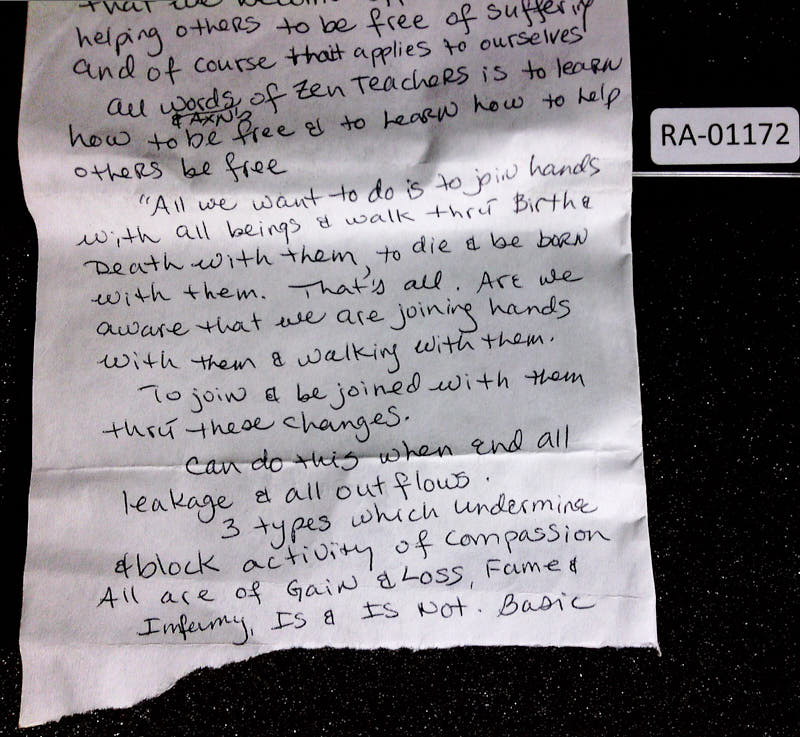 that we become
helping others to be free of suffering
and of course that applies to ourselves
all words of Zen Teachers is to learn
& AXN's
how to be free & to learn how to help
others be free
"All we want to do is to join hands
with all beings & walk thru Birth &
Death with them, to die & be born
with them. That's all. Are we
aware that we are joining hands
with them & walking with them.
To join & be joined with them
thru these changes.
Can do this when end all
leakage & all out flows.
3 types which undermine
& block activity of compassion
All are of Gain & Loss, Fame &
Infamy, IS & IS Not. Basic
RA-01172